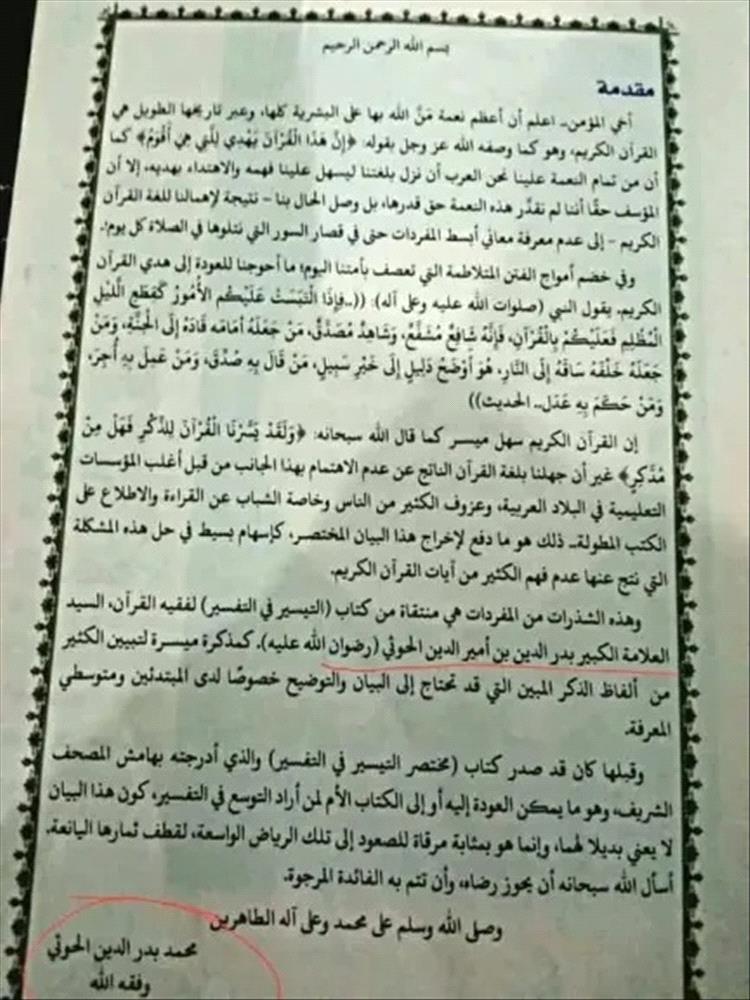 بسم الله الرحمن الرحيم
مقدمة
أخي المؤمن.. اعلم أن أعظم نعمة مَنَّ الله بها على البشرية كلها، وعبر تاريخها الطويل هي
القرآن الكريم، وهو كما وصفه الله عز وجل بقوله: ﴿إِنَّ هَذَا الْقُرْآنَ يَهْدِي لِلَّتِي هِيَ أَقْوَمُ﴾ كما
أن من تمام النعمة علينا نحن العرب أن نزل بلغتنا ليسهل علينا فهمه والاهتداء بهديه، إلا أن
المؤسف حقًا أننا لم نقدِّر هذه النعمة حق قدرها، بل وصل الحال بنا - نتيجة لإهمالنا للغة القرآن
الكريم - إلى عدم معرفة معاني أبسط المفردات حتى في قصار السور التي نتلوها في الصلاة كل يوم!.
وفي خضم أمواج الفتن المتلاطمة التي تعصف بأمتنا اليوم؛ ما أحوجنا للعودة إلى هدي القرآن
الكريم. يقول النبي (صلوات الله عليه وعلى آله): ((..فَإِذَا الْتَبَسَتْ عَلَيْكُم الأُمُورُ كَقِطَعِ اللَّيْلِ
الْمُظْلِمِ فَعَلَيْكُمْ بِالْقُرْآنِ، فَإِنَّهُ شَافِعٌ مُشَفَّعٌ، وَشَاهِدٌ مُصَدَّقٌ، مَنْ جَعَلَهُ أَمَامَه قَادَهُ إِلَى الْجَنَّةِ، وَمَنْ
جَعَلَهُ خَلْفَهُ سَاقَهُ إِلَى النَّارِ، هُوَ أَوْضَحُ دَلِيلٍ إِلَى خَيْرِ سَبِيلٍ، مَنْ قَالَ بِهِ صُدِّقَ، وَمَنْ عَمِلَ بِهِ أُجِرَ،
وَمَنْ حَكَمَ بِهِ عَدَلَ.. الحديث))
إن القرآن الكريم سهل ميسر كما قال الله سبحانه: ﴿وَلَقَدْ يَسَّرْنَا الْقُرْآنَ لِلذِّكْرِ فَهَلْ مِنْ
مُدَّكِرٍ﴾ غير أن جهلنا بلغة القرآن الناتج عن عدم الاهتمام بهذا الجانب من قبل أغلب المؤسسات
التعليمية في البلاد العربية، وعزوف الكثير من الناس وخاصة الشباب عن القراءة والاطلاع على
الكتب المطولة.. ذلك هو ما دفع لإخراج هذا البيان المختصر، كإسهام بسيط في حل هذه المشكلة
التي نتج عنها عدم فهم الكثير من آيات القرآن الكريم.
وهذه الشذرات من المفردات هي منتقاة من كتاب (التيسير في التفسير) لفقيه القرآن، السيد
العلامة الكبير بدر الدين بن أمير الدين الحوثي (رضوان الله عليه). كمذكرة ميسرة لتبيين الكثير
من ألفاظ الذكر المبين التي قد تحتاج إلى البيان والتوضيح خصوصًا لدى المبتدئين ومتوسطي
المعرفة.
وقبلها كان قد صدر كتاب (مختصر التيسير في التفسير) والذي أدرجته بهامش المصحف
الشريف، وهو ما يمكن العودة إليه أو إلى الكتاب الأم لمن أراد التوسع في التفسير، كون هذا البيان
لا يعني بديلا لهما، وإنما هو بمثابة مرقاة للصعود إلى تلك الرياض الواسعة، لقطف ثمارها اليانعة.
أسأل الله سبحانه أن يحوز رضاه، وأن تتم به الفائدة المرجوة.
وصلى الله وسلم على محمد وعلى آله الطاهرين
محمد بدر الدين الحوثي
وفقه الله